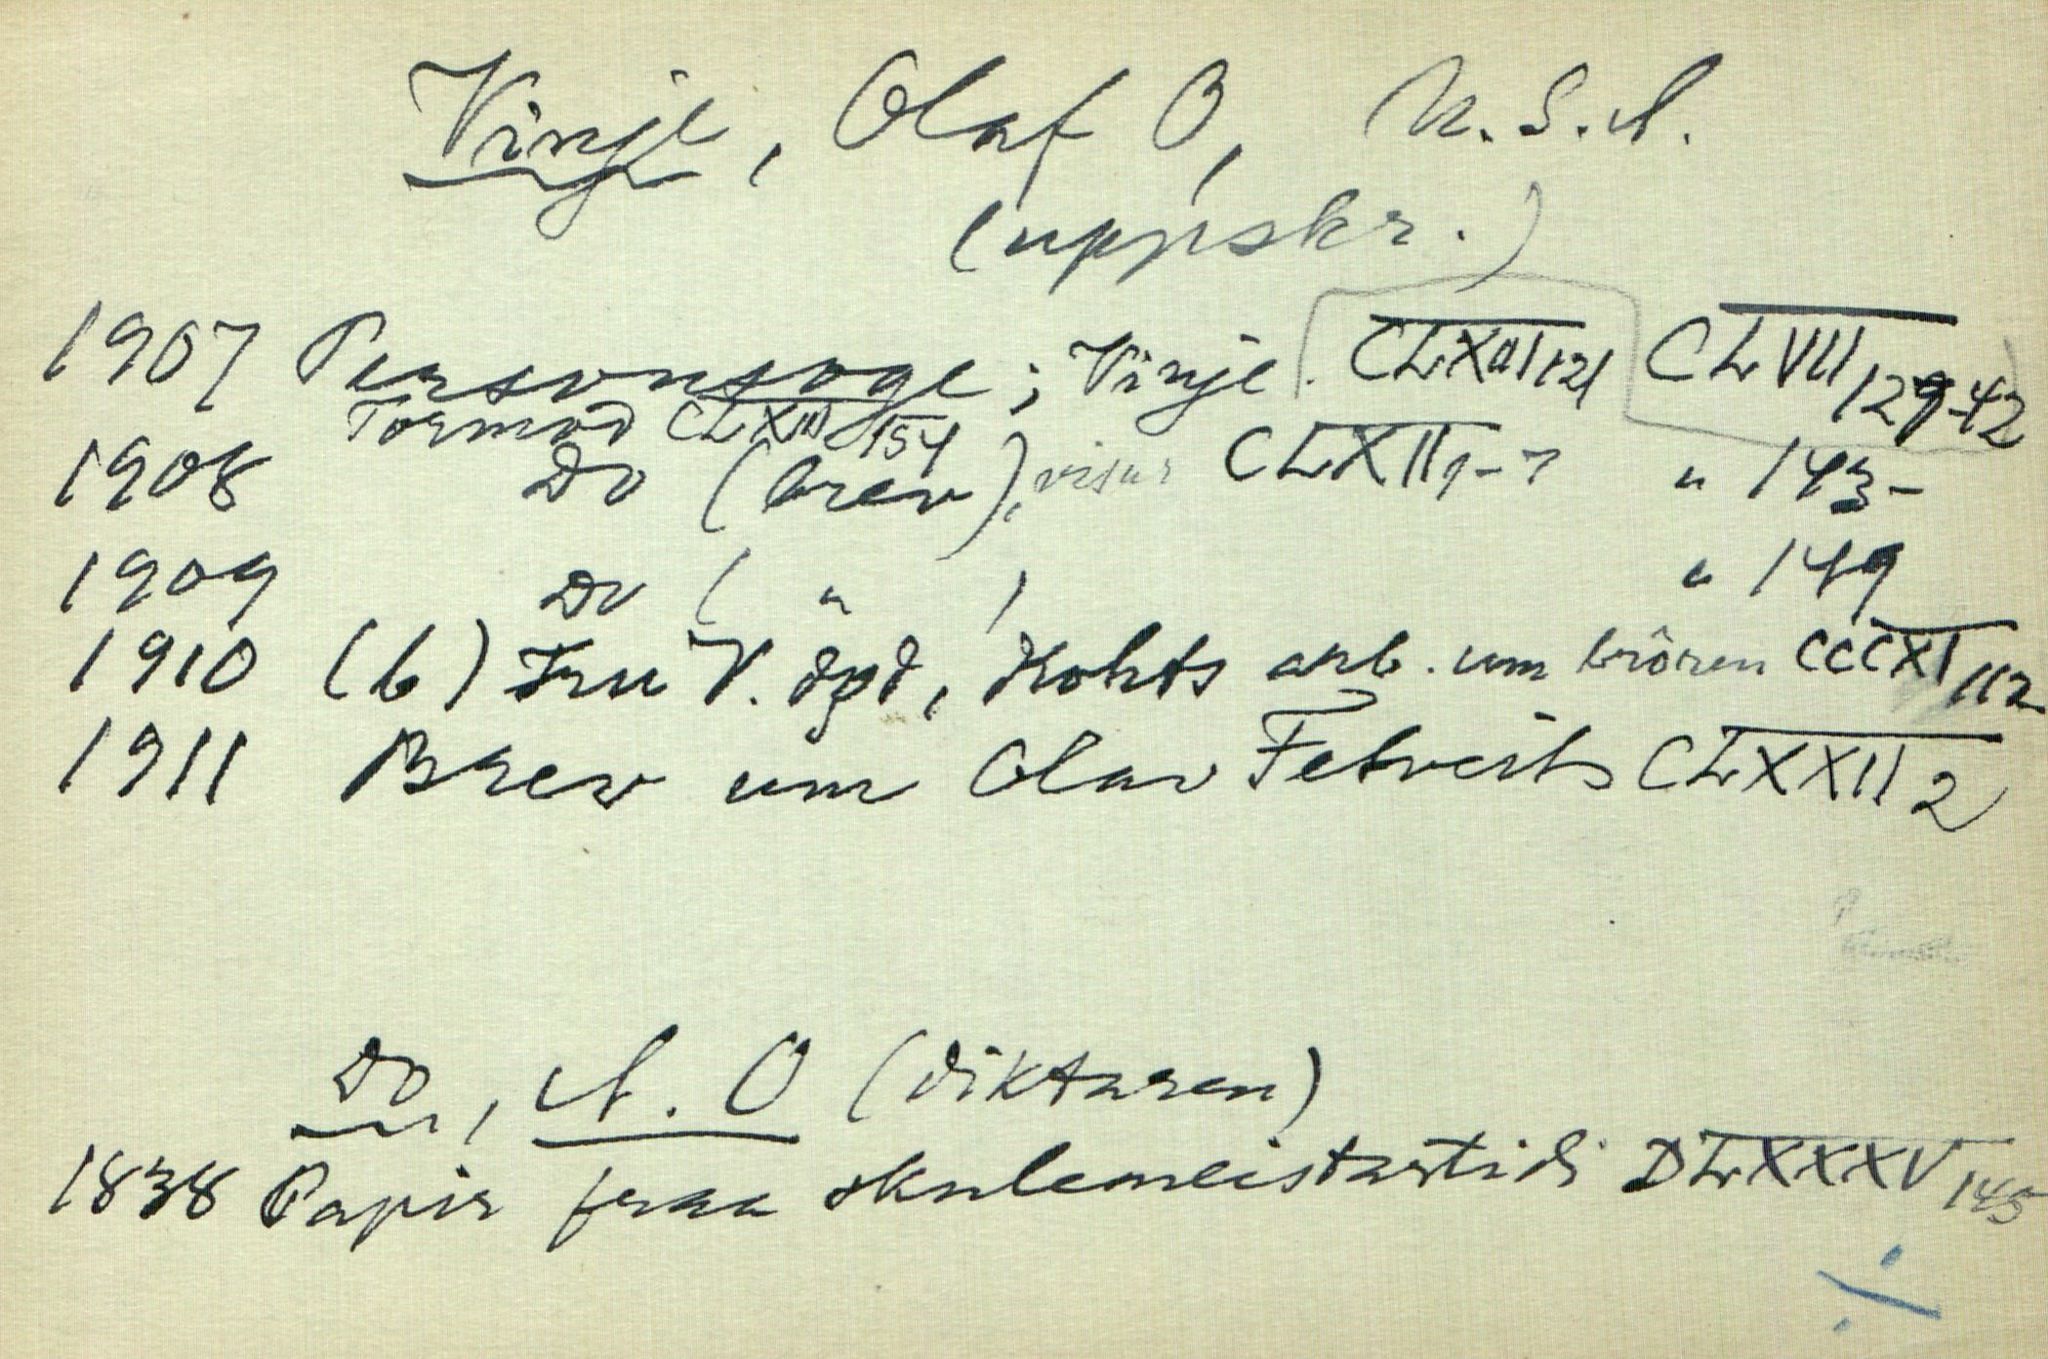 Vinje, Olaf O, U.S.A.
(uppskr.)
1907 Personsoge; Vinje. CLXIII 121 CLVII 129-42
Tormod CLXIII 154
1908 Do (brev), visur CLXII 1-7 " 143-
1909 Do ( " ) " 149
1910 (b) Fru V. Kohts arb. um brören CCCXI 112
1911 Brev um Olav Fetveits CLXXII 2
Do, A. O (diktaren)
1838 Papir fraa skulemeistartidi DLXXXV 145